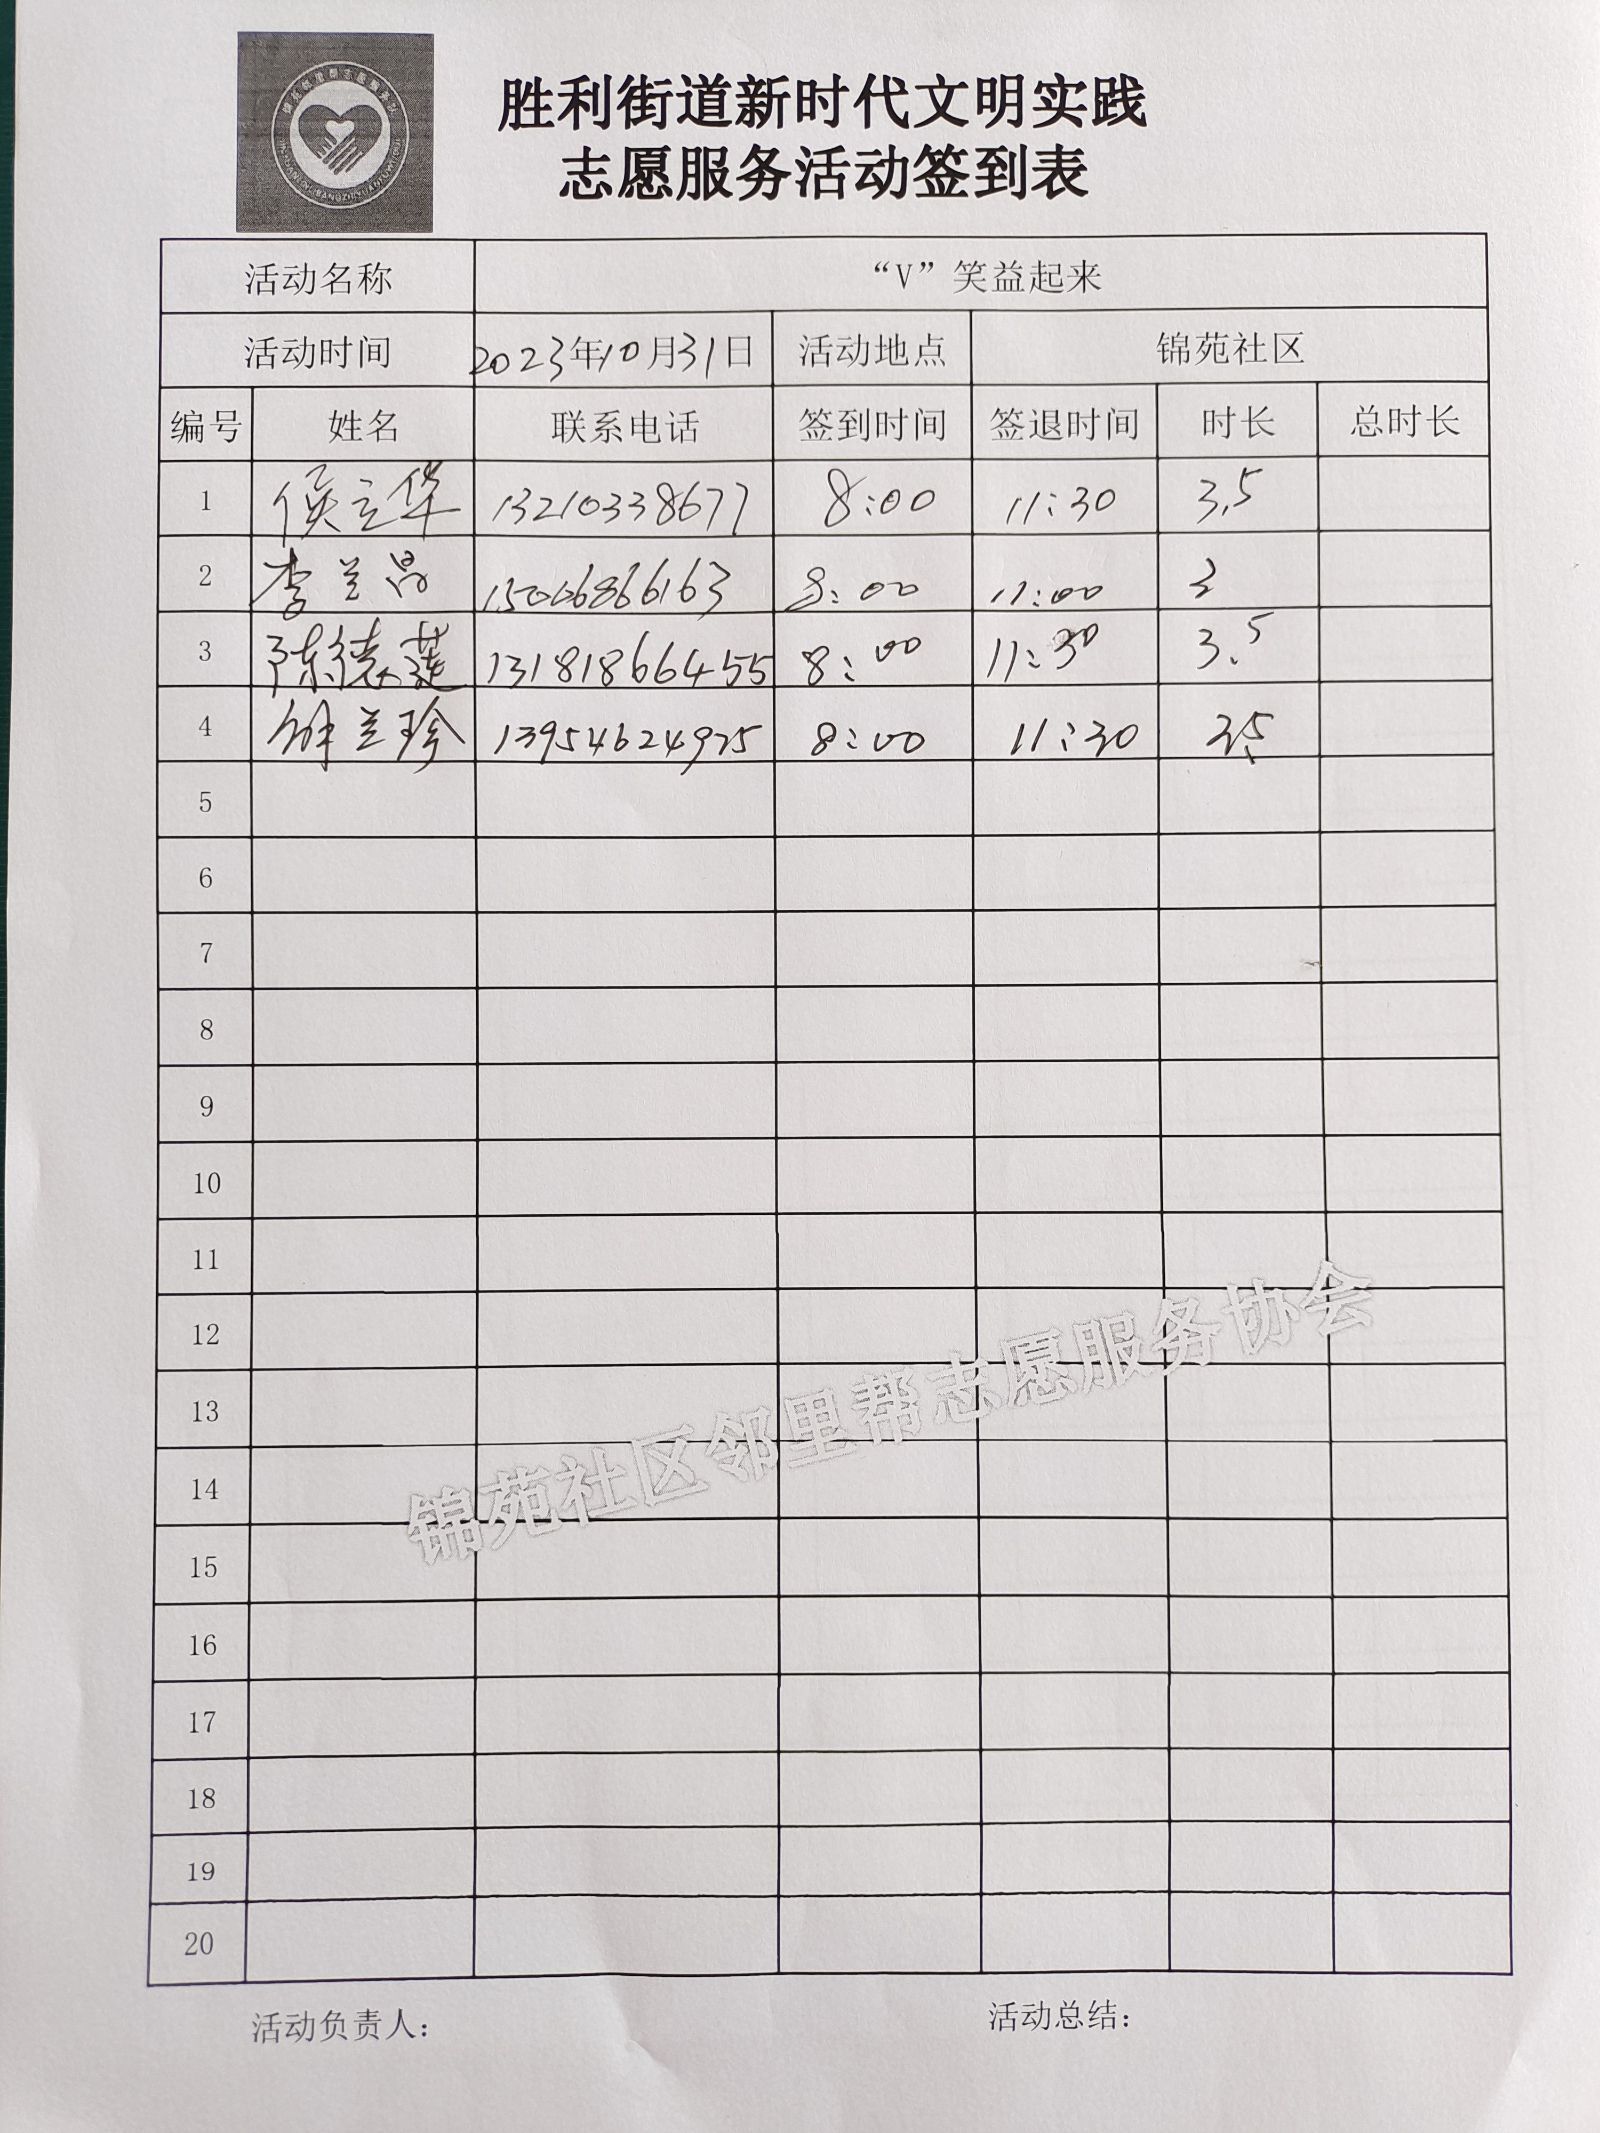 胜利街道新时代文明实践
志愿服务活动签到表
活动名称 “V”笑益起来
活动时间 2023年10月31日 活动地点 锦苑社区
编号 姓名 联系电话 签到时间 签退时间 时长 总时长
1 侯立华 13210338677 8:00 11:30 3.5
2 李兰昌 15006866163 8:00 11:00 3
3 陈德莲 13181866455 8:00 11:30 3.5
4 兰珍 13954624925 8:00 11:30 3.5
5
6
7
8
9
10
11
12
13
14
15
16
17
18
19
20
锦苑社区邻里帮志愿服务协会
活动负责人: 活动总结: